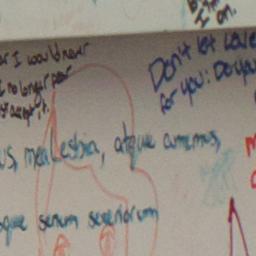 I
on.
or I would never
I no longer fear
Don't let Love
for you: Do you
us, mea Lesbia, atque amemus,
oque senum severiorum